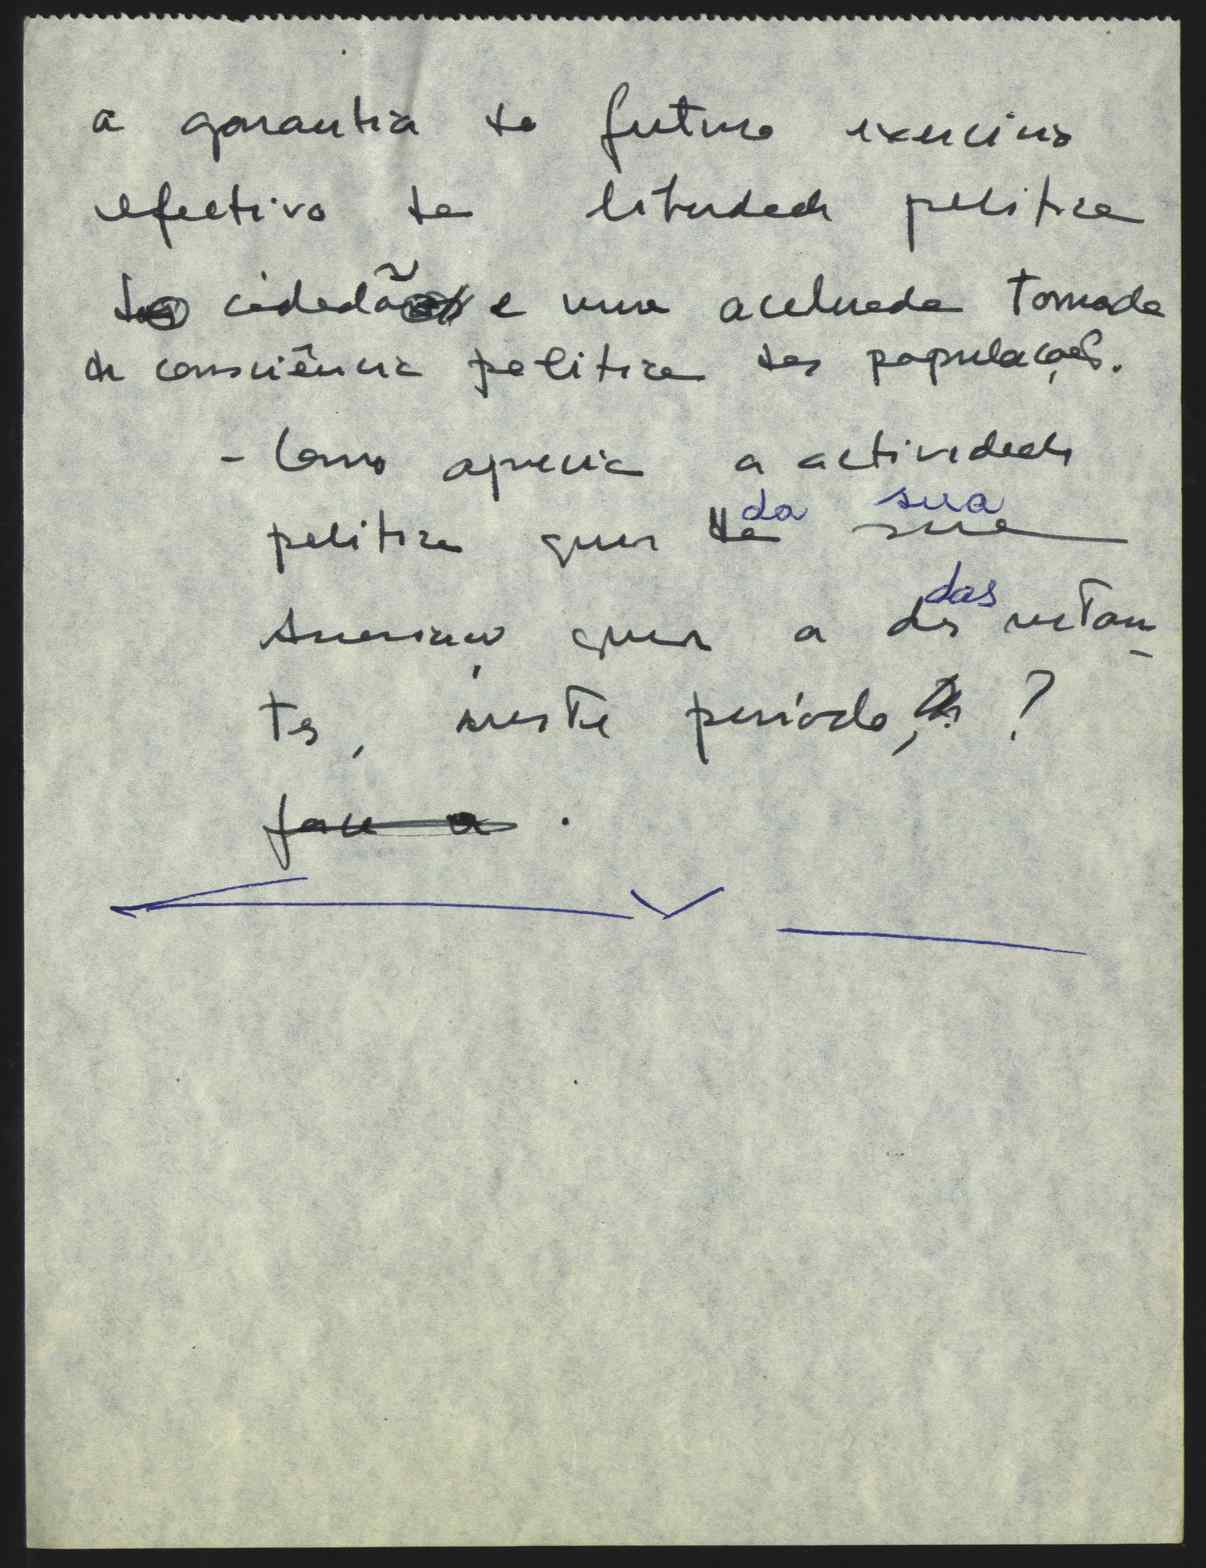 a garantia do futuro exercício
efectivo da liberdade politica
do cidadão e uma acelerada tomada
de consciência politica das populações.
- Como aprecia a actividade
da sua
politica quer da sua
das
associação quer a das restan-
tes, neste período, ?
face a .